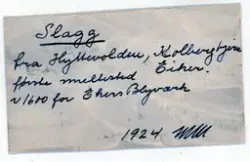 Slagg
fra Hyttevolden, Kolbergtjern
første smeltested Eiker.
v/1600 for Ekers Blyverk
1924